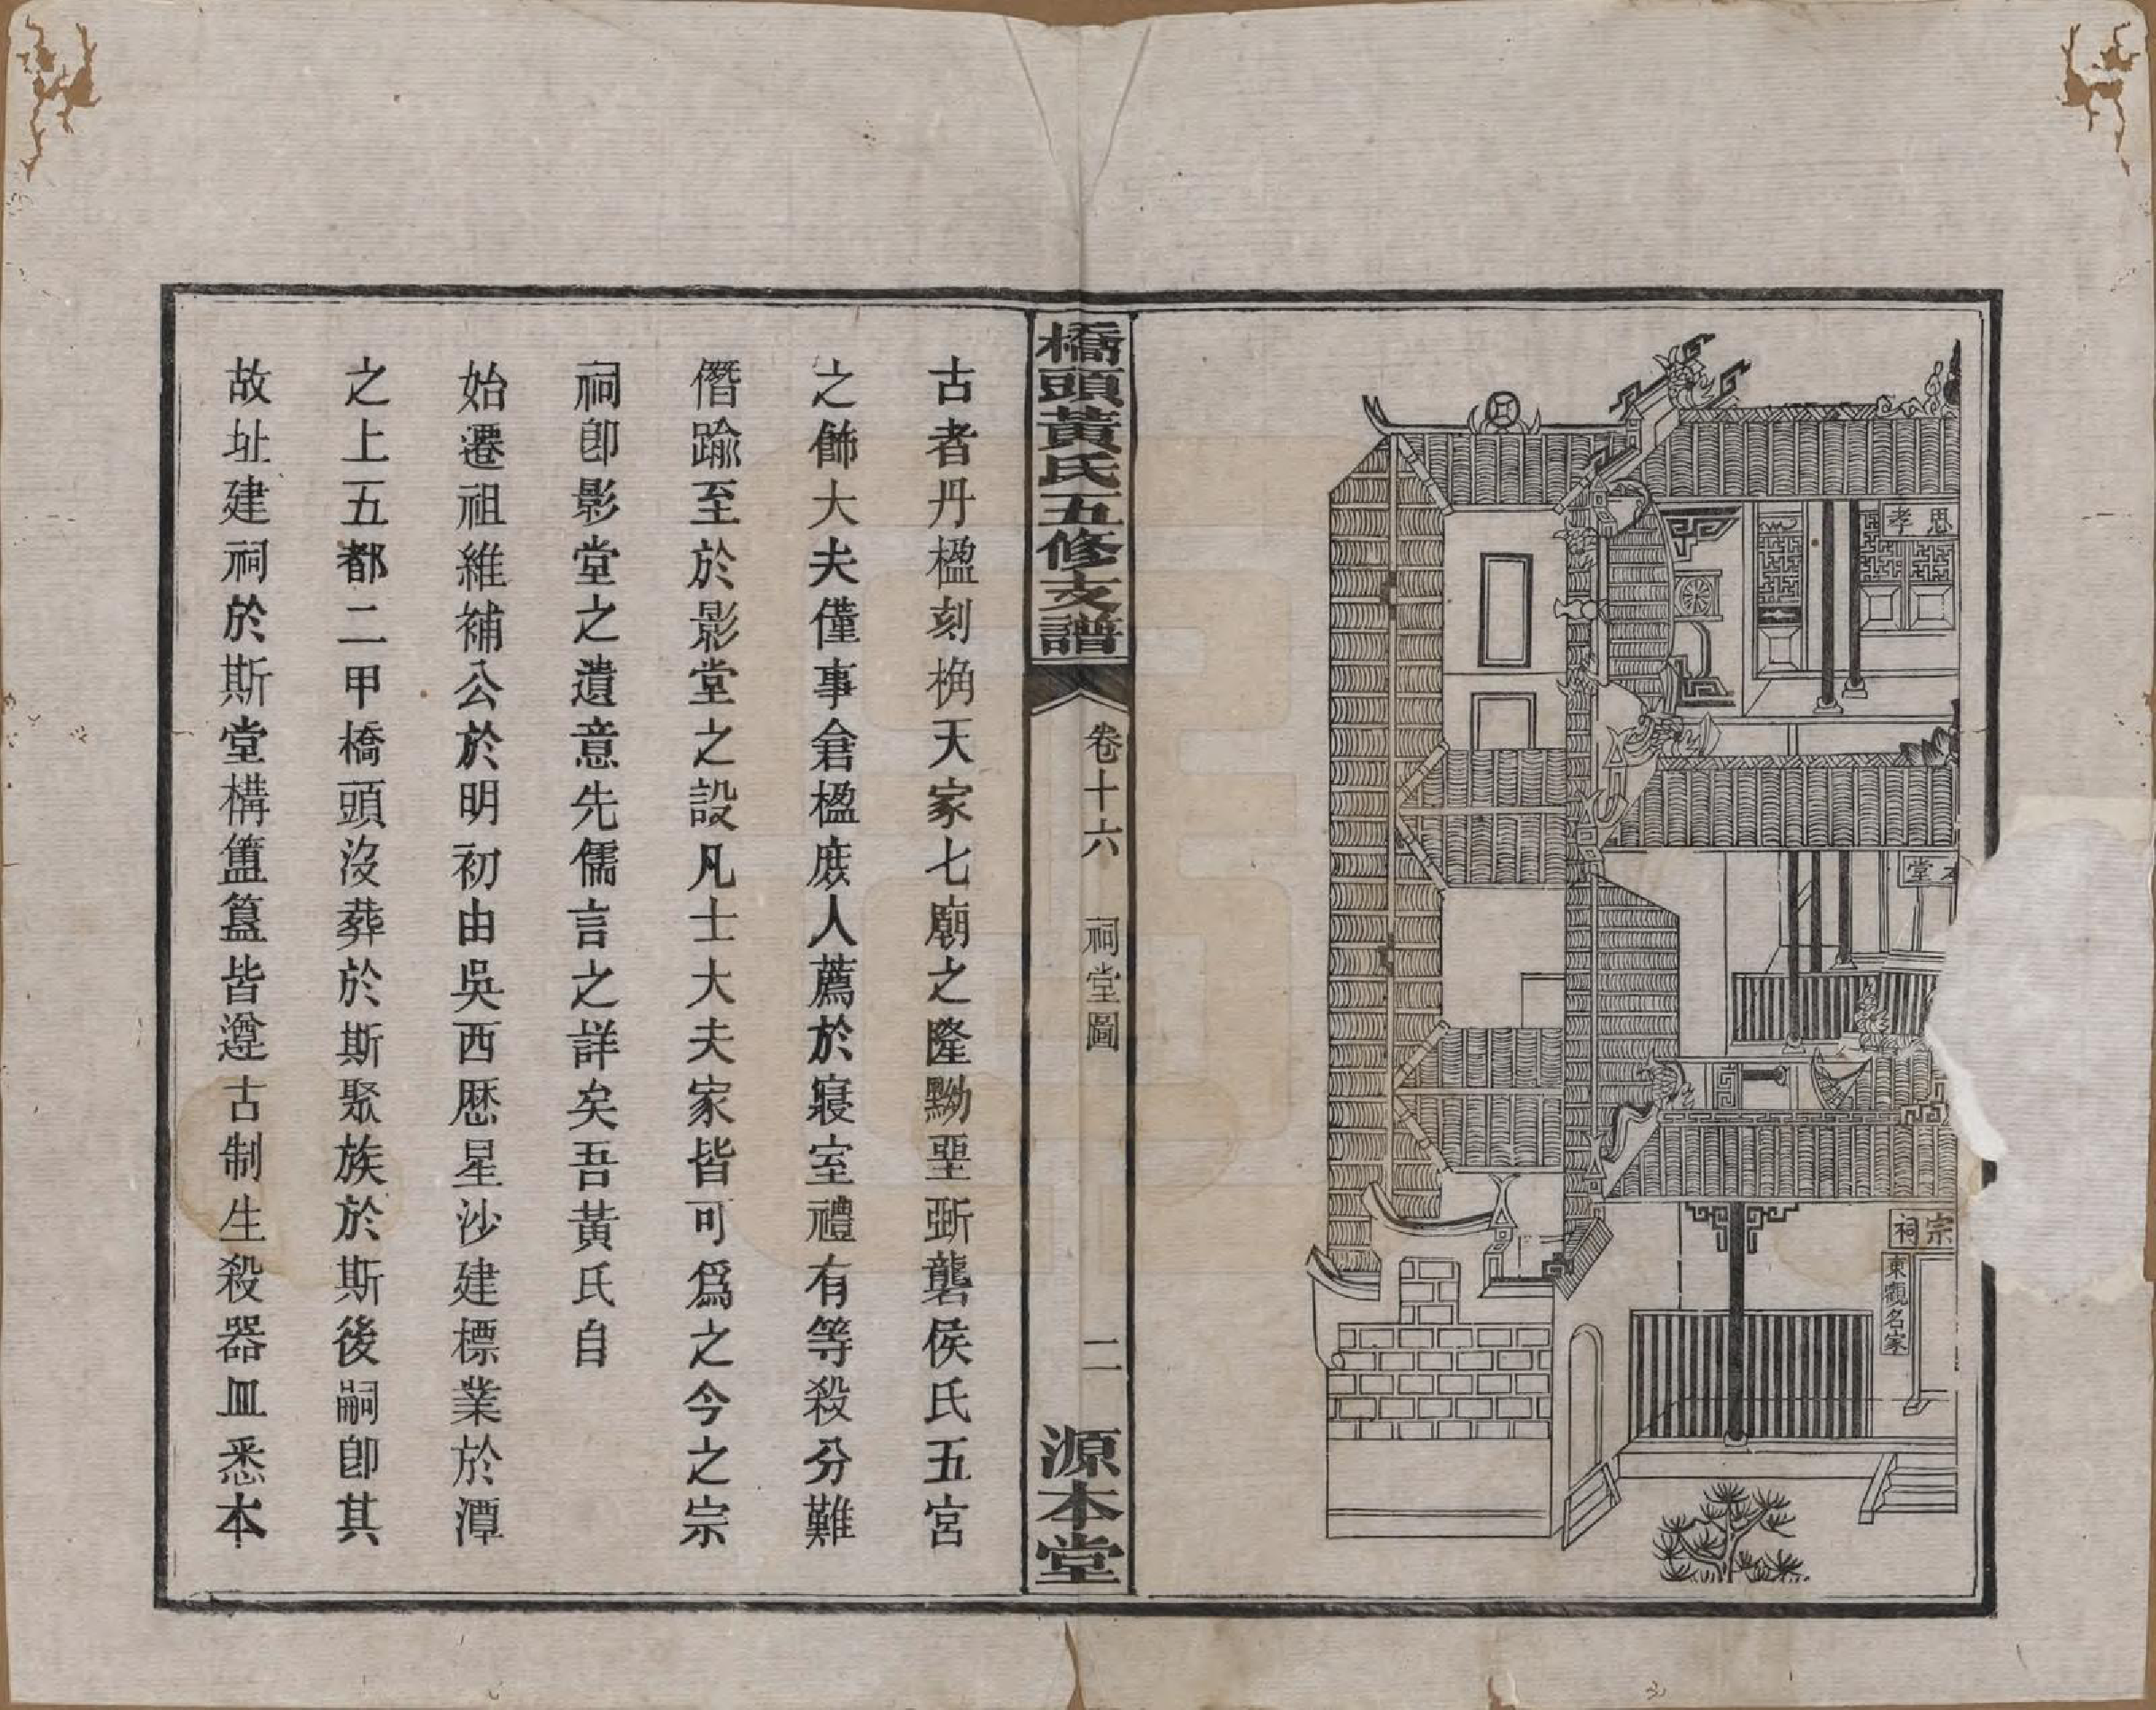 思孝
堂
宗祠
東觀名家
橋頭黃氏五修支譜
卷十六
祠堂圖
二
源本堂
古者丹楹刻桷天家七廟之隆黝堊斲礱侯氏五宮
之飾大夫僅事倉楹庶人薦於寢室禮有等殺分難
僭踰至於影堂之設凡士大夫家皆可爲之今之宗
祠卽影堂之遺意先儒言之詳矣吾黃氏自
始遷祖維補公於明初由吳西歷星沙建標業於潭
之上五都二甲橋頭沒葬於斯聚族於斯後嗣卽其
故址建祠於斯堂構簠簋皆遵古制生殺器皿悉本